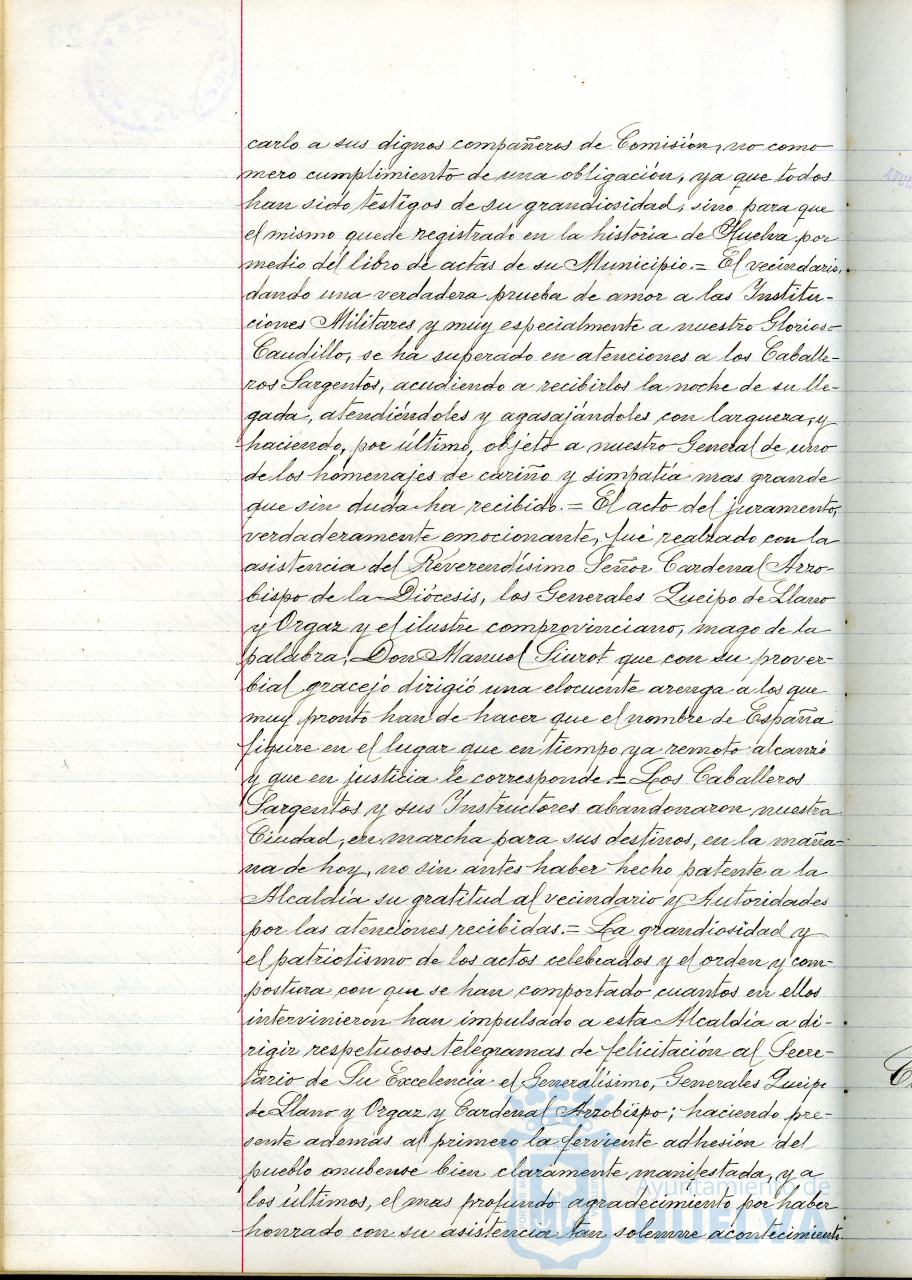 carlo a sus dignos compañeros de Comisión, no como
mero cumplimiento de una obligación, ya que todos
han sido testigos de su grandiosidad, sino para que
el mismo quede registrado en la historia de Huelva por
medio del libro de actas de su Municipio.= El vecindario,
dando una verdadera prueba de amor a las Institu-
ciones Militares y muy especialmente a nuestro Glorioso
Caudillo, se ha superado en atenciones a los Caballe-
ros Sargentos, acudiendo a recibirlos la noche de su lle-
gada, atendiéndoles y agasajándoles con largueza, y
haciendo, por último, objeto a nuestro General de uno
de los homenajes de cariño y simpatía mas grande
que sin duda ha recibido.= El acto del juramento,
verdaderamente emocionante, fué realzado con la
asistencia del Reverendísimo Señor Cardenal Arzo-
bispo de la Diócesis, los Generales Queipo de Llano
y Orgaz y el ilustre comprovinciano, mago de la
palabra, Don Manuel Siurot que con su prover-
bial gracejo dirigió una elocuente arenga a los que
muy pronto han de hacer que el nombre de España
figure en el lugar que en tiempo ya remoto alcanzó
y que en justicia le corresponde.= Los Caballeros
Sargentos y sus Instructores abandonaron nuestra
Ciudad, en marcha para sus destinos, en la maña-
na de hoy, no sin antes haber hecho patente a la
Alcaldía su gratitud al vecindario y Autoridades
por las atenciones recibidas.= La grandiosidad y
el patriotismo de los actos celebrados y el orden y com-
postura con que se han comportado cuantos en ellos
intervinieron han impulsado a esta Alcaldía a di-
rigir respetuosos telegramas de felicitación al Secre-
tario de Su Excelencia el Generalísimo, Generales Queipo
de Llano y Orgaz y Cardenal Arzobispo; haciendo pre-
sente además al primero la ferviente adhesión del
pueblo onubense bien claramente manifestada, y a
los últimos, el mas profundo agradecimiento por haber
honrado con su asistencia tan solemne acontecimiento.
Ayuntamiento de
HUELVA